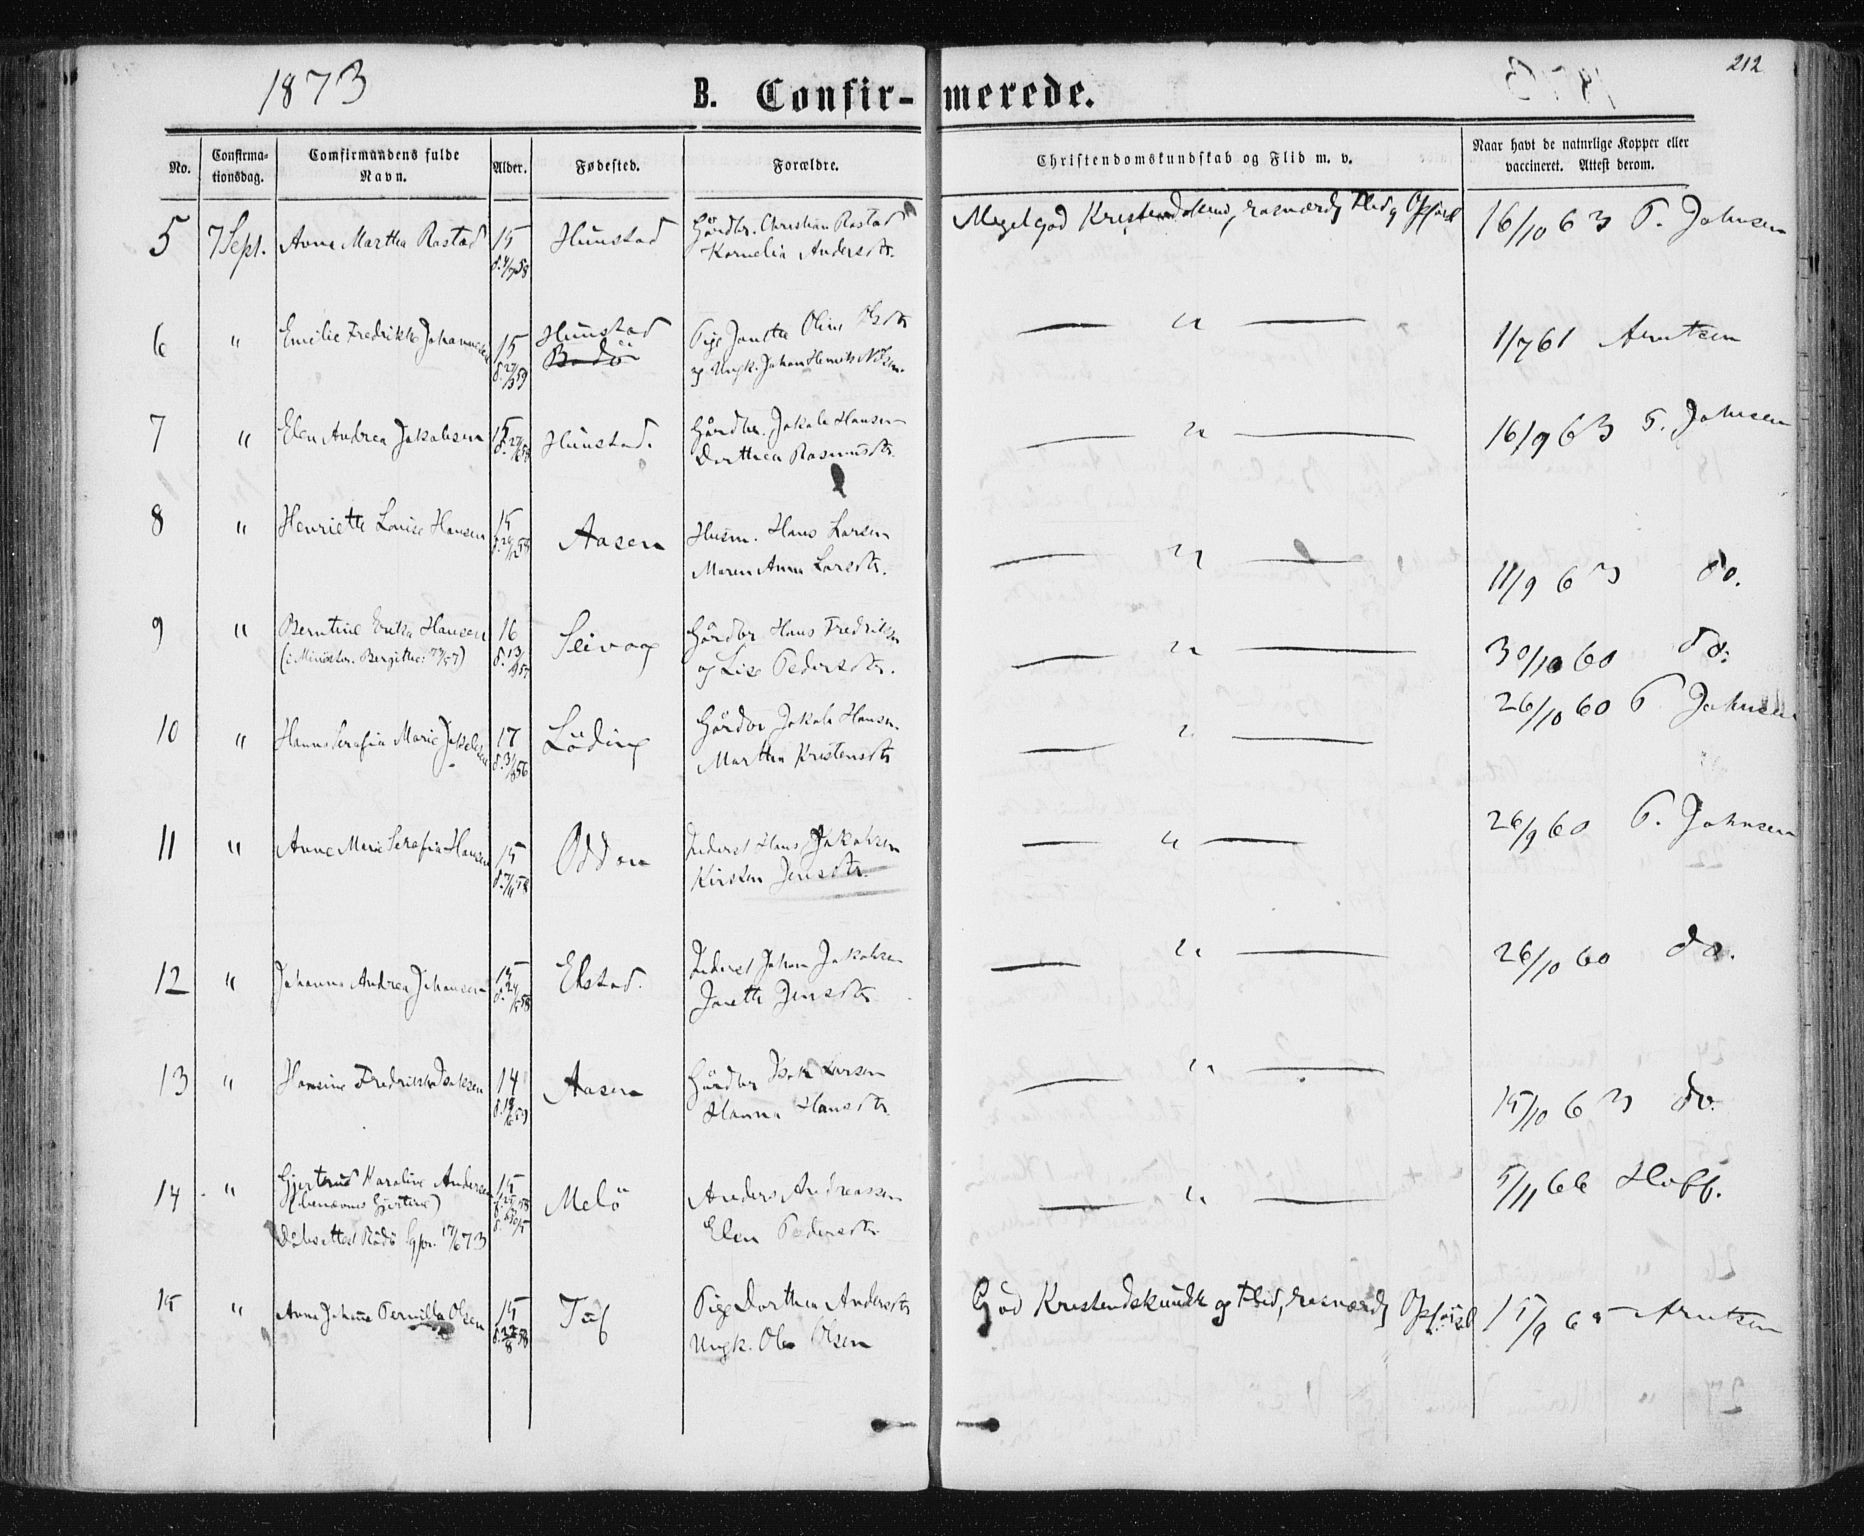 1873
B. Confir-merede.
212
No.
Confirma-
tionsdag.
Comfirmandens fulde
Navn.
Alder.
Fødested.
Forældre.
Christendomskundskab og Flid m. v.
Naar havt de naturlige Kopper eller
vaccineret. Attest derom.
5 7 Sept. Anne Martha Rastad 15 Hunstad Gårdbr. Christian Rastad
Kornelia Andersdtr.
Megetgod Kristendskund, rosværdig Flid og Opførsel 16/10 63 P. Johnsen
6 " Emilie Fredrikke Johannesen 15 Hunstad
Bodö
Pige Janetha Olina
og Ungk. Johan Henrik
— " — 1/7 61 Arntzen
7 " Elen Andrea Jakobsen 15 Hunstad. Gårdbr. Jakob Hansen
Dorthea Rasmusdtr.
— " — 16/9 63 P. Johnsen
8 " Henriette Louise Hansen 15 Aasen Husm. Hans Larsen
Maren Anna Larsdtr.
— " — 11/9 63 do.
9 " Berntine Erika Hansen 16 Seivaag Gårdbr Hans Fredriksen
og Lise Pedersdtr.
— " — 30/10 60 do.
10 " Hanna Serafia Marie Jakobsen 17 Löding Gårdbr Jakob Hansen
Martha Kristensdtr
— " — 26/10 60 P. Johnsen
11 " Anne Marie Serafia Hansen 15 Oddan Inderst Hans Jakobsen
Kirsten Jensdtr.
— " — 26/9 60 P. Johnsen
12 " Johanna Andrea Johansen 15 Elstad. Inderst Johan Jakobsen
Janetta Jensdtr
— " — 26/10 60 do.
13 " Hansine Fredrikke Isaksen 14 Aasen Gårdbr Isak Larsen
Hanna Hansdtr.
— " — 15/10 63 do.
14 " Gjertrud Karoline Andersen 15 Melö Anders Andreassen
Elen Pedersdtr
— " — 5/11 66 Hoff.
Dåbsattest Rödö 17/6 73
15 " Anna Johanna Pernilla Olsen 15 Tuf Pige Dorthea Andersdtr
Ungk. Ole Olsen
God Kristendskundsk og Flid, rosværdig Opførsel 15/9 65 Arntzen